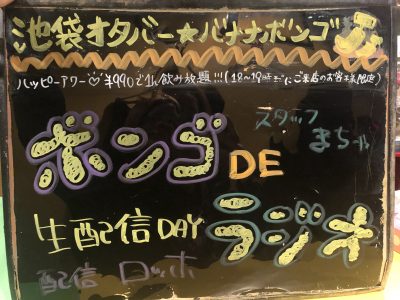 池袋オタバー★バナナボンゴ
ハッピーアワー♡¥990で1h飲み放題!!!(18~19時までにご来店のお客様限定)
スタッフ
まちゅ
ボンゴDE
生配信DAYラジオ
配信 ロッホ